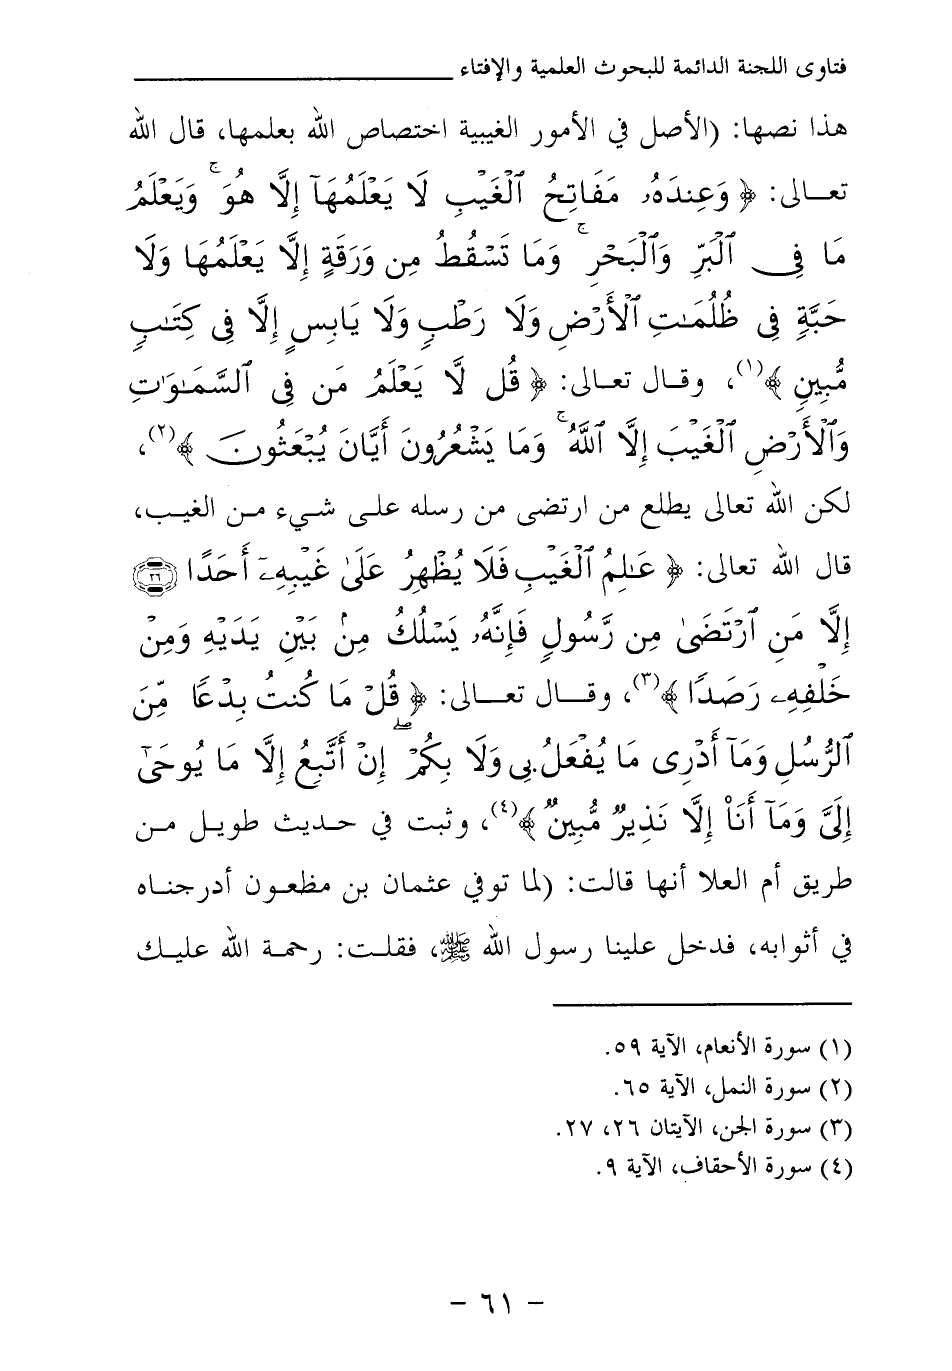 فتاوى اللجنة الدائمة للبحوث العلمية والإفتاء
هذا نصها: (الأصل في الأمور الغيبية اختصاص الله بعلمها، قال الله
تعالى: ﴿ وَعِندَهُۥ مَفَاتِحُ ٱلْغَيْبِ لَا يَعْلَمُهَآ إِلَّا هُوَ ۚ وَيَعْلَمُ
مَا فِى ٱلْبَرِّ وَٱلْبَحْرِ ۚ وَمَا تَسْقُطُ مِن وَرَقَةٍ إِلَّا يَعْلَمُهَا وَلَا
حَبَّةٍ فِى ظُلُمَـٰتِ ٱلْأَرْضِ وَلَا رَطْبٍ وَلَا يَابِسٍ إِلَّا فِى كِتَـٰبٍ
مُّبِينٍ ﴾(١)، وقال تعالى: ﴿ قُل لَّا يَعْلَمُ مَن فِى ٱلسَّمَـٰوَٰتِ
وَٱلْأَرْضِ ٱلْغَيْبَ إِلَّا ٱللَّهُ ۚ وَمَا يَشْعُرُونَ أَيَّانَ يُبْعَثُونَ ﴾(٢)،
لكن الله تعالى يطلع من ارتضى من رسله على شيء من الغيب،
قال الله تعالى: ﴿ عَـٰلِمُ ٱلْغَيْبِ فَلَا يُظْهِرُ عَلَىٰ غَيْبِهِۦٓ أَحَدًا ٢٦
إِلَّا مَنِ ٱرْتَضَىٰ مِن رَّسُولٍ فَإِنَّهُۥ يَسْلُكُ مِنۢ بَيْنِ يَدَيْهِ وَمِنْ
خَلْفِهِۦ رَصَدًا ﴾(٣)، وقال تعالى: ﴿ قُلْ مَا كُنتُ بِدْعًا مِّنَ
ٱلرُّسُلِ وَمَآ أَدْرِى مَا يُفْعَلُ بِى وَلَا بِكُمْ ۖ إِنْ أَتَّبِعُ إِلَّا مَا يُوحَىٰٓ
إِلَىَّ وَمَآ أَنَا۠ إِلَّا نَذِيرٌ مُّبِينٌ ﴾(٤)، وثبت في حديث طويل من
طريق أم العلا أنها قالت: (لما توفي عثمان بن مظعون أدرجناه
في أثوابه، فدخل علينا رسول الله ﷺ، فقلت: رحمة الله عليك
(١) سورة الأنعام، الآية ٥٩.
(٢) سورة النمل، الآية ٦٥.
(٣) سورة الجن، الآيتان ٢٦، ٢٧.
(٤) سورة الأحقاف، الآية ٩.
- ٦١ -